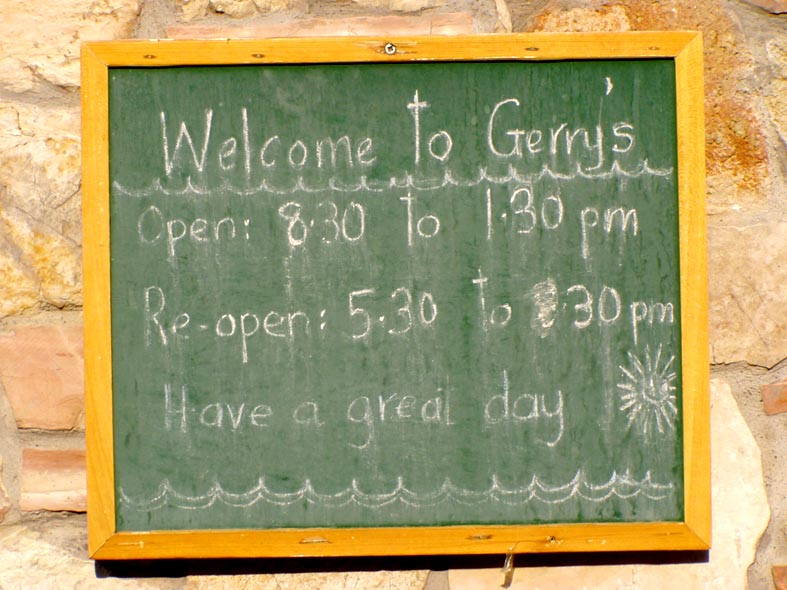 Welcome to Gerry's
Open: 8.30 to 1.30 pm
Re-open: 5.30 to pm
Have a great day